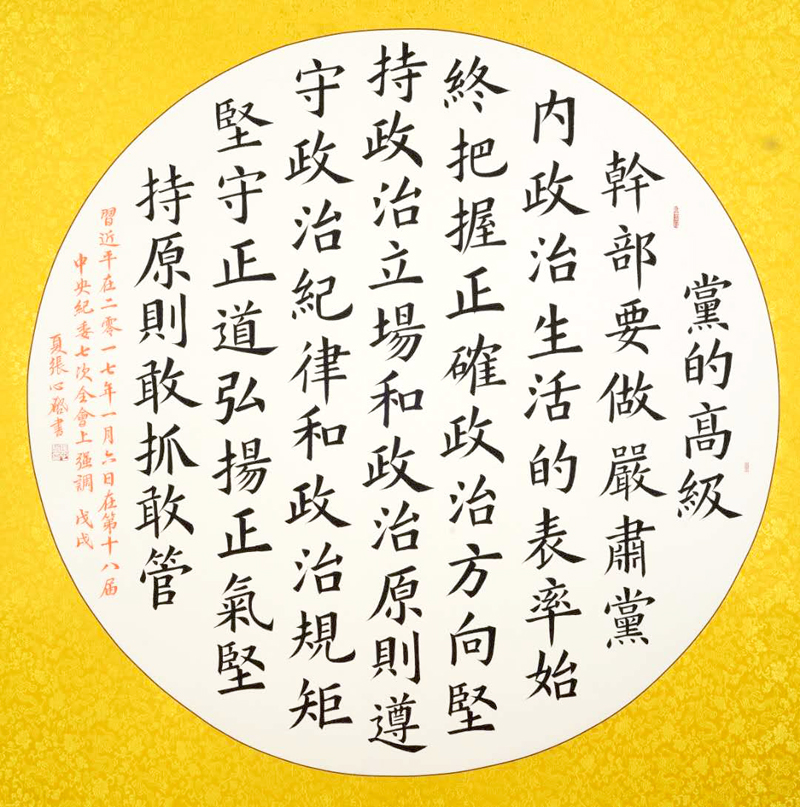 黨的高級
幹部要做嚴肅黨
内政治生活的表率始
終把握正確政治方向堅
持政治立場和政治原則遵
守政治紀律和政治規矩
堅守正道弘揚正氣堅
持原則敢抓敢管
習近平在二零一七年一月六日在第十八届
中央紀委七次全會上强調 戊戌
夏張心 書